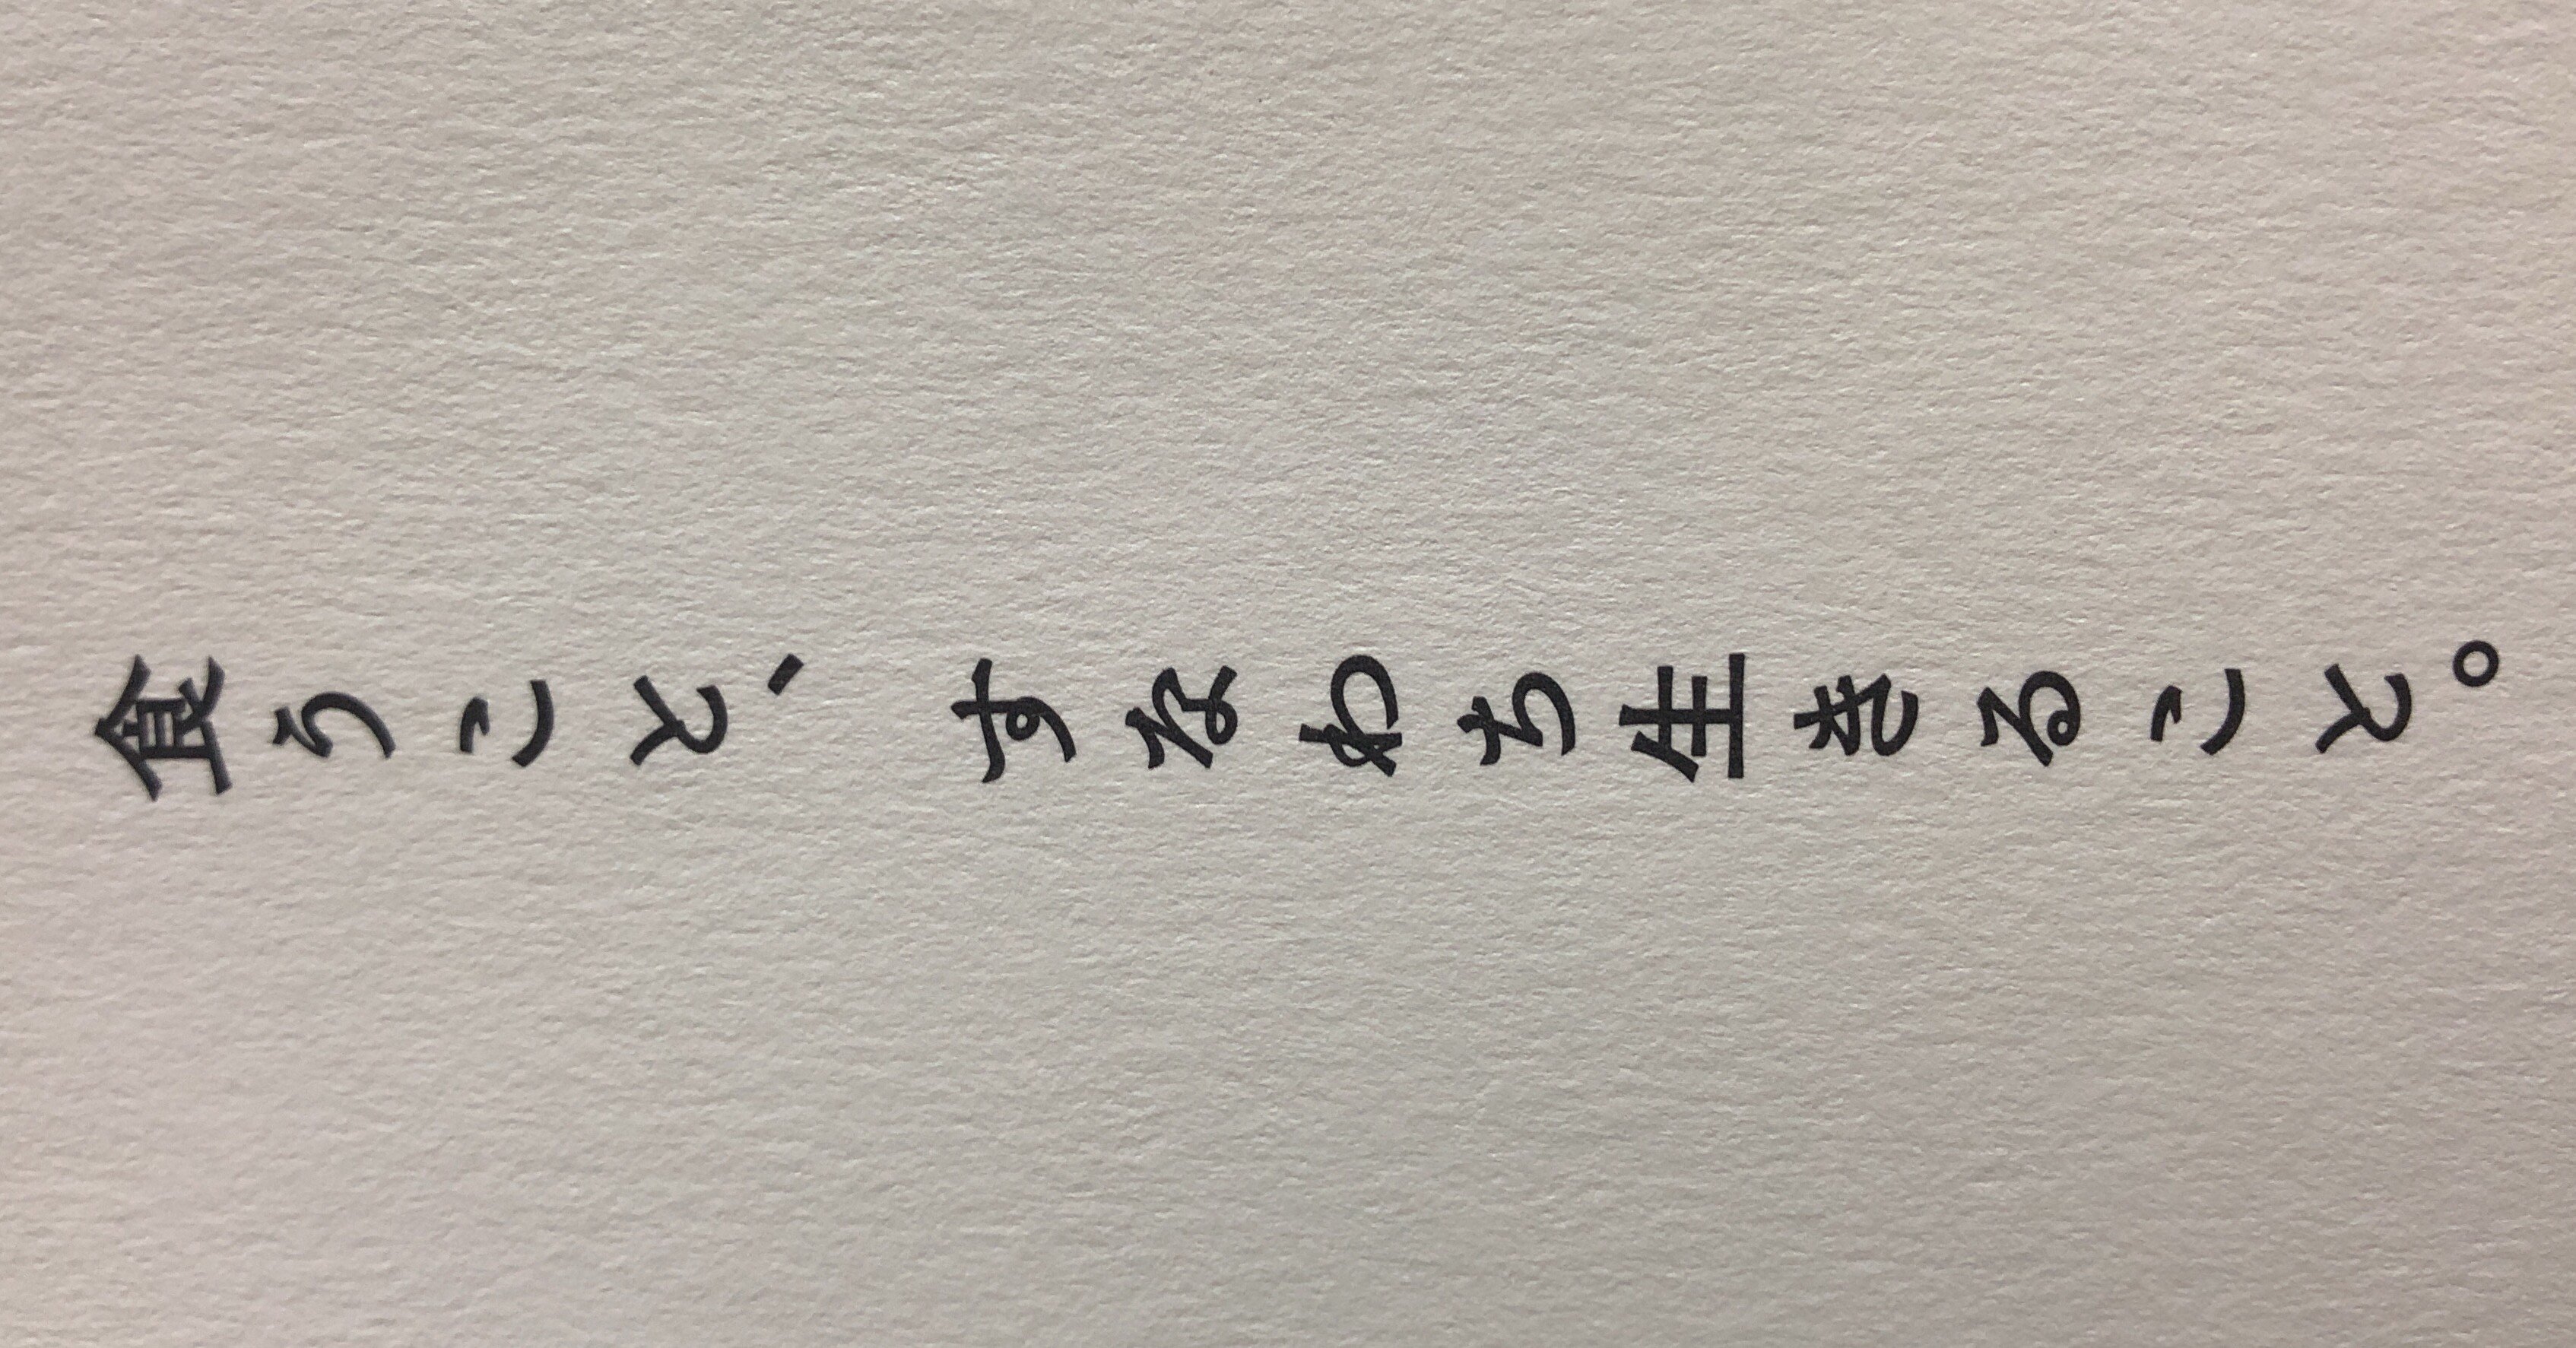 食うこと、すなわち生きること。